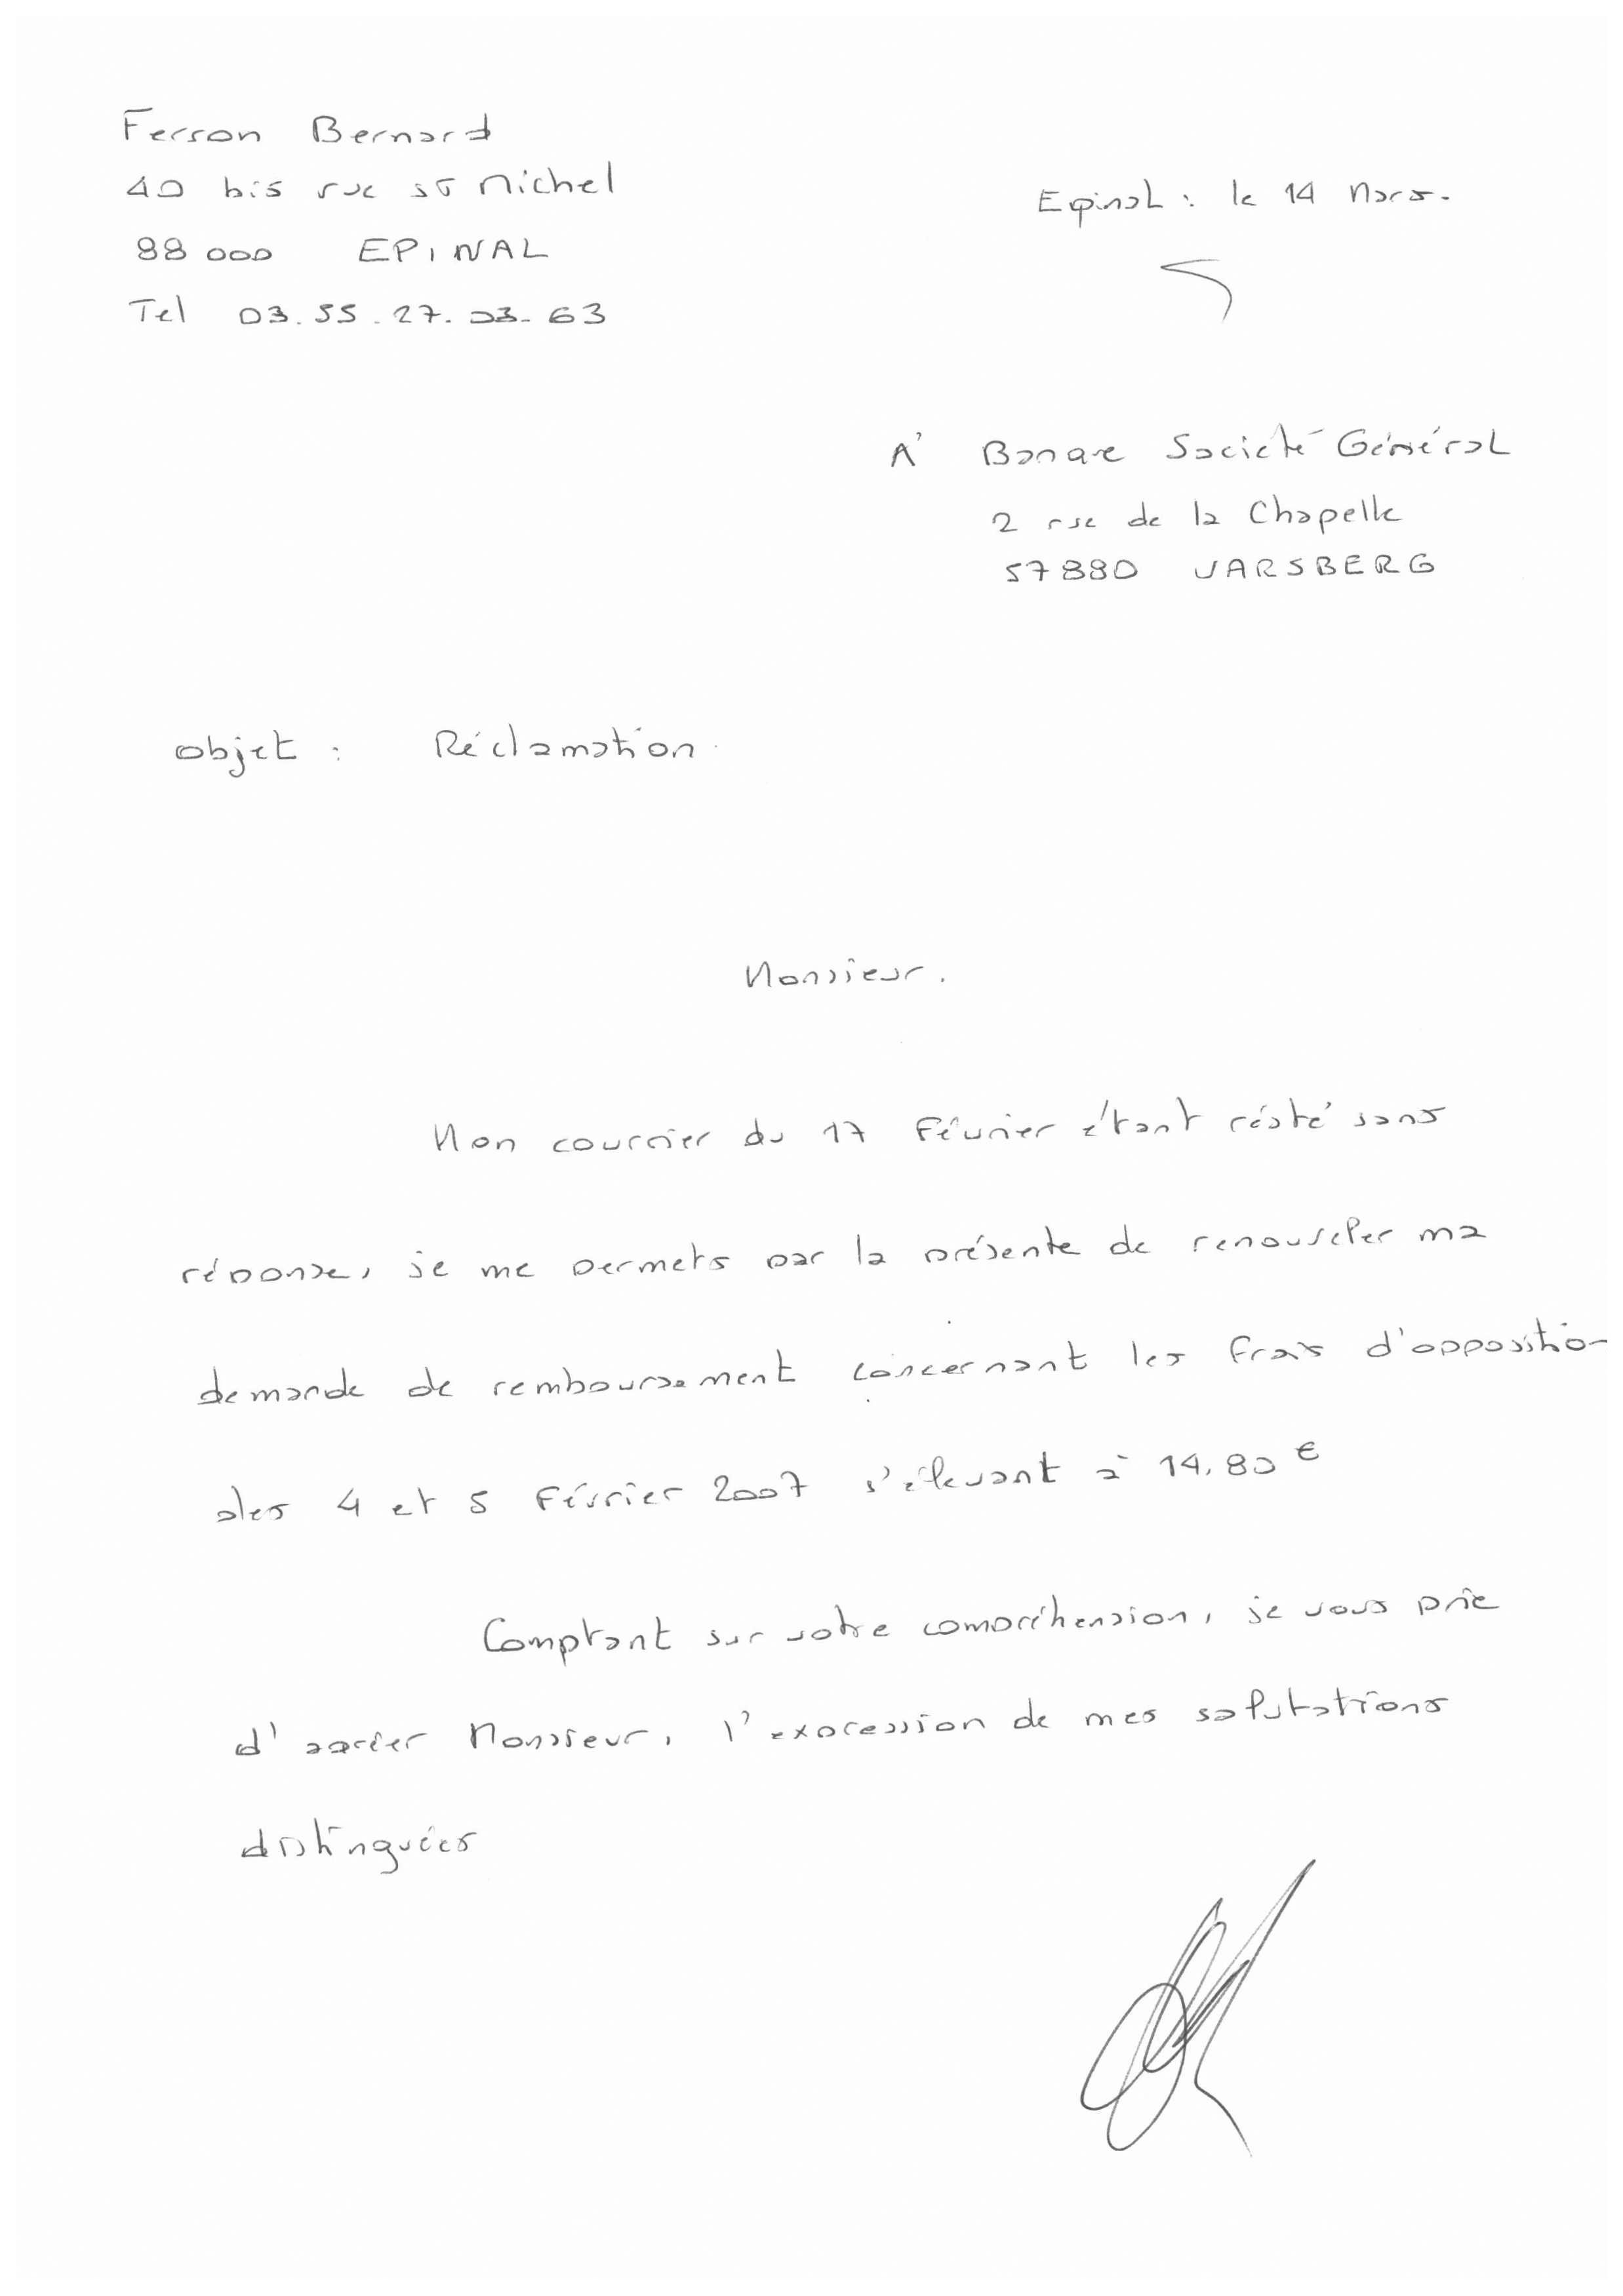 Ferson Bernard
40 bis rue st Michel
88 000 EPINAL
Tel 03.55.27.03.63
Epinal : le 14 Mars.
A' Banque Société Général
2 rue de la Chapelle
57880 VARSBERG
Objet : Réclamation.
Monsieur.
Mon courrier du 17 Février étant résté sans
réponse, je me permets par la présente de renouveler ma
demande de remboursement concernant les frais d'opposition
des 4 et 5 Février 2007 s'élevant à 14,80 €
Comptant sur votre compréhension, je vous prie
d'agréer Monsieur, l'expression de mes salutations
distinguées